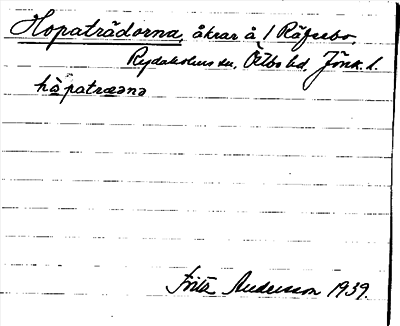 Hopaträdorna, åkrar å 1 Räfsebo,
Rydaholms sn, Östbo hd, Jönk. l.
hòpatræəna
Fritz Andersson 1939.